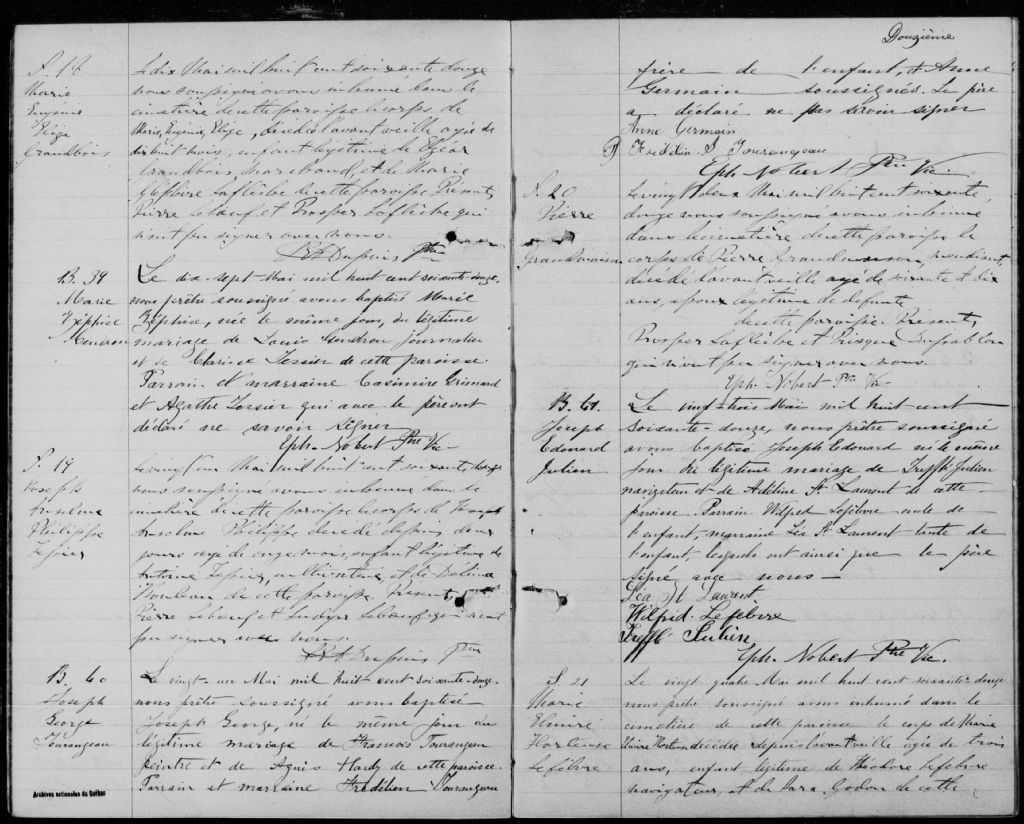 S. 18
Marie
Eugénie
Elize
Grandbois
Le dix Mai mil huit cent soixante douze
nous soussigné avons inhumé dans le
cimetière de cette paroisse le corps de
Marie, Eugénie, Elize, décédée l'avant veille agée de
dix huit mois, enfant légitime de Elzéar
Grandbois, marchand, et de Marie
Lafleche de cette paroisse Présents
Pierre Lebœuf et Prosper Laflèche qui
n'ont pu signer avec nous.
Dupuis Ptre
B. 39
Marie
Zéphise
Gendron
Le dix-sept Mai mil huit cent soixante-douze,
nous prêtre soussigné avons baptisé Marie
Zéphise, née le même jour, du légitime
mariage de Louis Gendron journalier
et de Clarisse Tessier de cette paroisse.
Parrain et marraine Casimire Grimard
et Agathe Tessier qui avec le père ont
déclaré ne savoir signer
Eph. Nobert Ptre Vic-
S. 19
Joseph
Anselme
Philippe
Tessier
Le vingt un Mai mil huit cent soixante douze
nous soussigné avons inhumé dans le
cimetière de cette paroisse le corps de Joseph
Anselme Philippe décédé depuis deux
jours agé de onze mois, enfant légitime de
Antoine Tessier, cultivateur, et de Délima
de cette paroisse. Présents
Pierre Lebœuf et Ludger Lebœuf qui n'ont
pu signer avec nous.
Dupuis Ptre
B. 60
Joseph
George
Tourangeau
Le vingt-un Mai mil huit cent soixante-douze,
nous prêtre soussigné avons baptisé
Joseph George, né le même jour du
légitime mariage de Francois Tourangeau
peintre et de Agnès Hardy de cette paroisse.
Parrain et marraine Fredelien Tourangeau
Archives nationales du Québec
Douzième
frère de l'enfant, et Anne
Germain soussignés. Le père
a déclaré ne pas savoir signer
Anne Germain
Fridélin S. Tourangeau
Eph. Nobert Ptre Vic-
S. 20
Pierre
Grandmaison
Le vingt deux Mai mil huit cent soixante
douze nous soussigné avons inhumé
dans le cimetière de cette paroisse le
corps de Pierre Grandmaison, mendiant,
décédé l'avant veille agé de soixante et dix
ans, époux légitime de défunte
de cette paroisse. Présents,
Prosper Laflèche et
qui n'ont pu signer avec nous.
Eph. Nobert Ptre Vic-
B. 61.
Joseph
Edouard
Julien
Le vingt-trois Mai mil huit cent
soixante-douze, nous prêtre soussigné
avons baptisé Joseph Edouard né le même
jour du légitime mariage de Trefflé Julien
navigateur et de Adéline St. Laurent de cette
paroisse. Parrain Wilfred Lefebvre oncle de
l'enfant, marraine Léa St Laurent tante de
l'enfant, lesquels ont ainsi que le père
signé avec nous —
Léa St Laurent
Wilfrid. Lefebvre
Trefflé Julien
Eph. Nobert Ptre Vic.
S. 21
Marie
Elmire
Hortense
Lefebvre
Le vingt quatre Mai mil huit cent soixante douze
nous prêtre soussigné avons enhumé dans le
cimetière de cette paroisse le corps de Marie
Elmire Hortense décédée depuis l'avant veille agée de trois
ans, enfant légitime de Théodore Lefebvre
navigateur, et de Sara Godon de cette